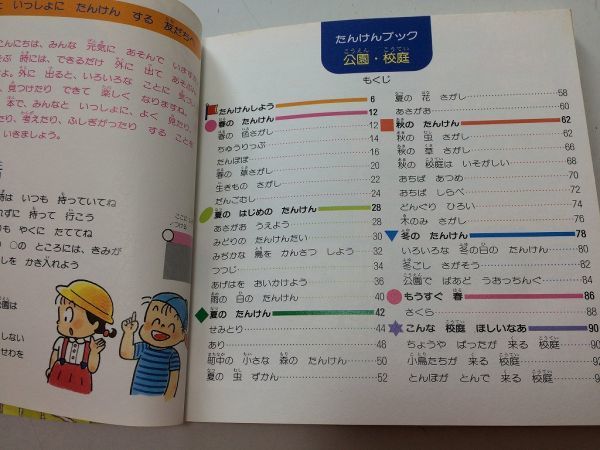 と いっしょに たんけん する 友だちへ
こんにちは、みんな 元気に あそんで いますか
時には、できるだけ 外に 出て あそぶ
は、外に 出ると、いろいろな ことに
、見つけたり できて 楽しく なりますね。
本で、みんなと いっしょに、よく 見たり、
たり、考えたり、ふしぎがったり する ことを
いきましょう。
時は いつも 持っていてね
れずに 持って 行こう
も やくに たててね
○の ところには、きみが
に かき入れよう
園は
しない
せわを
たんけんブック
公園・校庭
もくじ
たんけんしよう 6
春の たんけん 12
春の 色さがし 14
ちゅうりっぷ 16
たんぽぽ 18
春の 草さがし 20
生きもの さがし 22
だんごむし 24
夏の はじめの たんけん 28
あさがお うえよう 28
みどりの たんけんだい 30
みぢかな 鳥を かんさつ しよう 32
つつじ 34
あげはを おいかけよう 36
雨の 日の たんけん 40
夏の たんけん 42
せみとり 44
あり 48
町中の 小さな 森の たんけん 50
夏の 虫 ずかん 52
夏の 花 さがし 58
あさがお 60
秋の たんけん 62
秋の 虫 さがし 64
秋の 草 さがし 66
秋の 校庭は いそがしい 68
おちば あつめ 70
おちば しらべ 72
どんぐり ひろい 74
木のみ さがし 76
冬の たんけん 78
いろいろな 冬の日の たんけん 80
冬ごし さがそう 82
公園で ばあど うおっちんぐ 84
もうすぐ 春 86
さくら 88
こんな 校庭 ほしいなあ 90
ちょうや ばったが 来る 校庭 90
小鳥たちが 来る 校庭 92
とんぼが とんで 来る 校庭